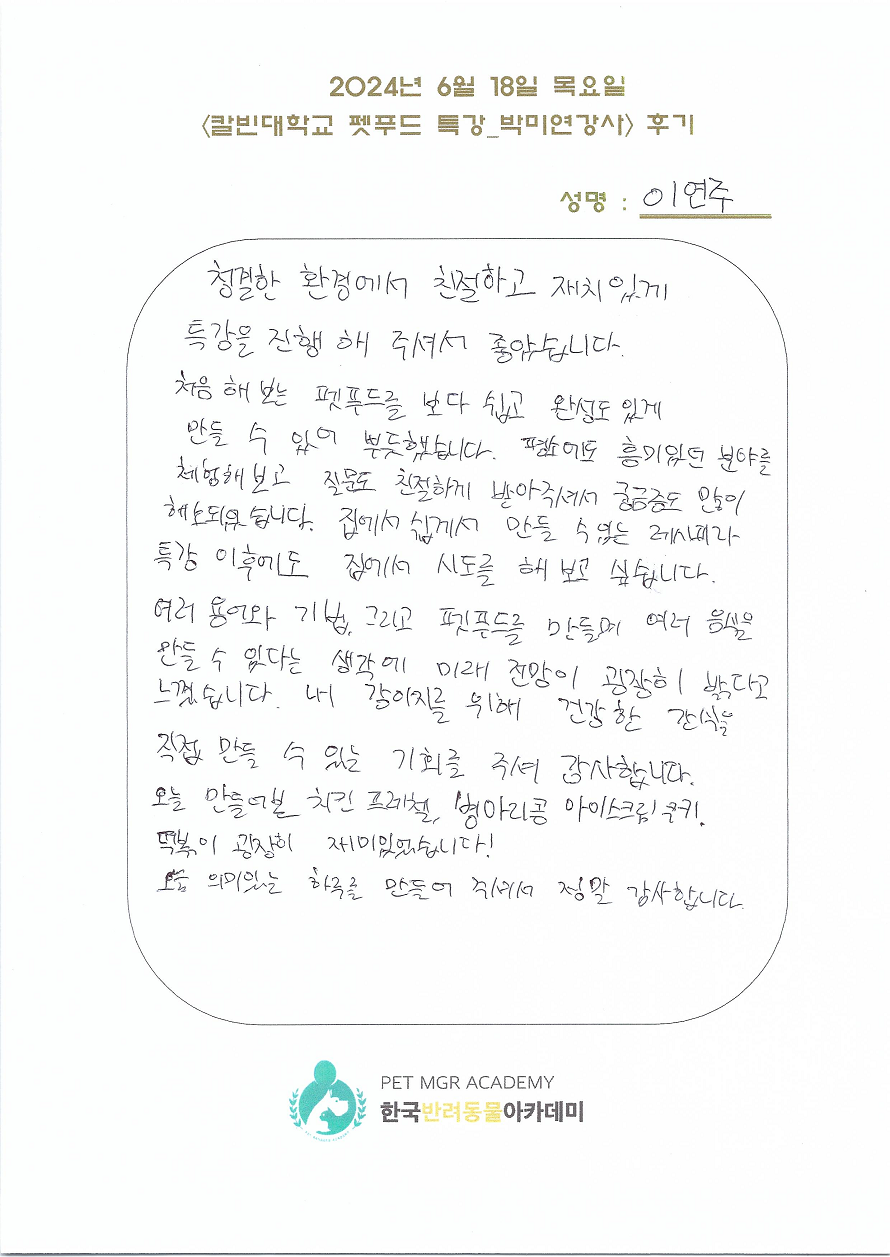 2024년 6월 18일 목요일
<칼빈대학교 펫푸드 특강_박미연강사> 후기
성명 : 이연주
청결한 환경에서 친절하고 재치있게
특강을 진행 해 주셔서 좋았습니다.
처음 해 보는 펫푸드를 보다 쉽고 완성도 있게
만들 수 있어 뿌듯했습니다. 평소에도 흥미있던 분야를
체험해보고 질문도 친절하게 받아주셔서 궁금증도 많이
해소되었습니다. 집에서 쉽게서 만들 수 있는 레시피라
특강 이후에도 집에서 시도를 해 보고 싶습니다.
여러 용어와 기법, 그리고 펫푸드를 만들며 여러 음식을
만들 수 있다는 생각에 미래 전망이 굉장히 밝다고
느꼈습니다. 내 강아지를 위해 건강한 간식을
직접 만들 수 있는 기회를 주셔 감사합니다.
오늘 만들어본 치킨 프레첼, 병아리콩 아이스크림 쿠키,
떡볶이 굉장히 재미있었습니다!
오늘 의미있는 하루를 만들어 주셔서 정말 감사합니다.
PET MGR ACADEMY
한국반려동물아카데미